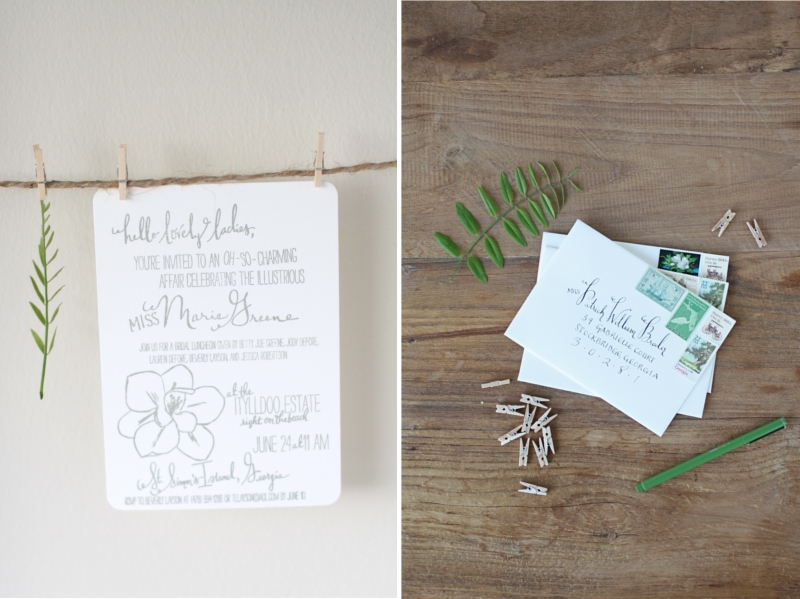 hello lovely ladies,
YOU'RE INVITED TO AN OH-SO-CHARMING
AFFAIR CELEBRATING THE ILLUSTRIOUS
MISS Marie Greene
JOIN US FOR A BRIDAL LUNCHEON GIVEN BY BETTY JOE GREENE, JODY BEFORE,
LAUREN BEFORE, BEVERLY LAYSON, AND JESSICA ROBERTSON
at the
ITYLLDOO ESTATE
right on the beach
JUNE 24 at 11 AM
St. Simon's Island, Georgia
RSVP TO BEVERLY LAYSON AT BY JUNE 10
MRS. Patrick William
34 GABRIELLE COURT
STOCKBRIDGE, GEORGIA
3.0.2.8.1